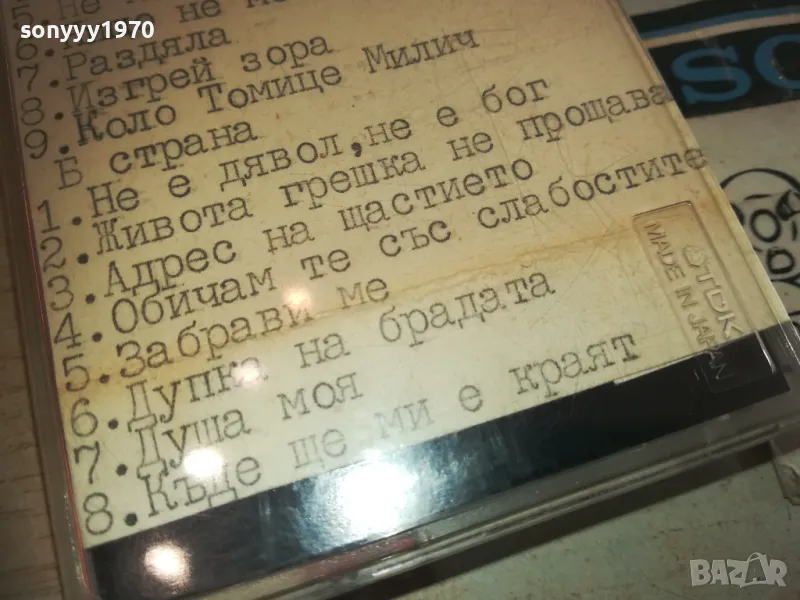 sonyyy1970
7.Раздяла
8.Изгрей зора
9.Коло Томице Милич
Б страна
1.Не е дявол,не е бог
2.Живота грешка не прощава
3.Адрес на щастието
4.Обичам те със слабостите
5.Забрави ме
6.Дупка на брадата
7.Душа моя
8.Къде ще ми е краят
TDK
MADE IN JAPAN
SO
BAZAR